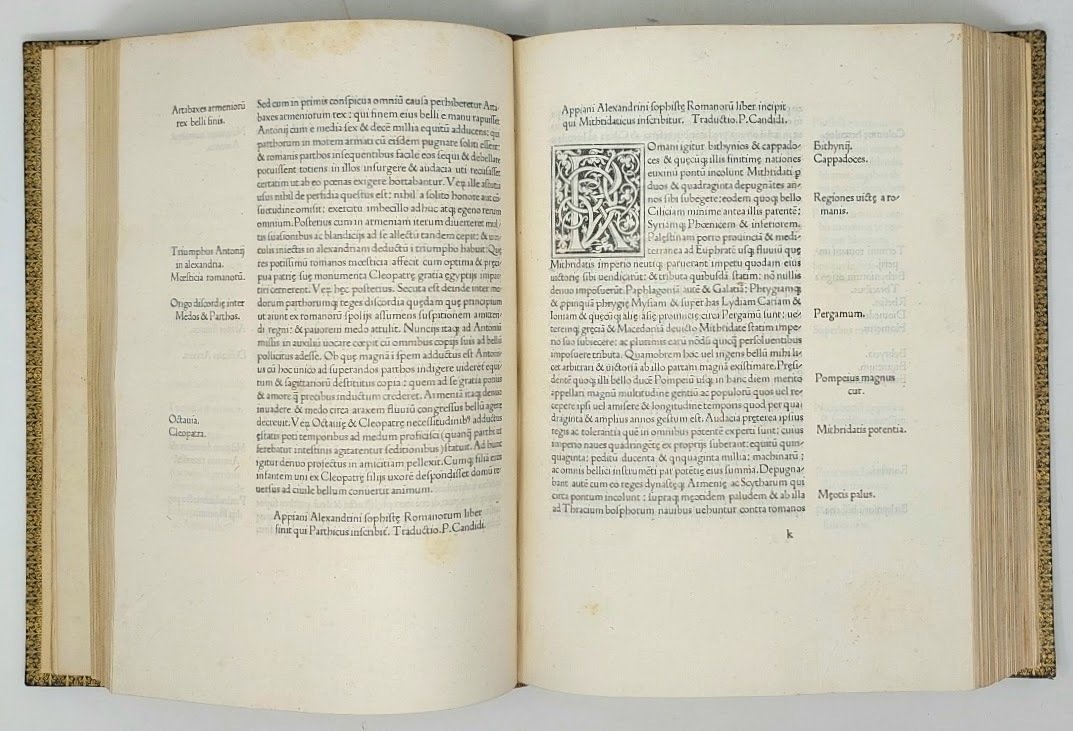 Artabaxes armeniorū
rex belli finis.
Triumphus Antonij
in alexandria.
Mœsticia romanorū.
Origo discordię inter
Medos & Parthos.
Octauia.
Cleopatra.
Sed cum in primis conspicua omniū causa perhiberetur Arta
baxes armeniorum rex: qui finem eius belli e manu rapuisset
Antonij cum e media sex & decē millia equitū adducens: qui
parthorum in morem armati cū eisdem pugnare soliti essent:
& romanis parthos insequentibus facile eos sequi & debellare
potuissent totiens in illos insurgere & audacia uti recusasset
certatim ut ab eo pœnas exigere hortabantur. Veꝝ ille astutia
usus nihil de perfidia questus est: nihil a solito honore aut cō
suetudine omisit: exercitu imbecillo adhuc atq; egeno rerum
omnium. Posterius cum in armeniam iterum diuerteret mul
tis suasionibus ac blandicijs ad se allectū tandem cepit: & uin
culis iniectis in alexandriam deductū i triumpho habuit. Quę
res potissimū romanos mœsticia affecit cum optima & pręci
pua patrię suę monumenta Cleopatrę gratia egyptijs imper
tiri cernerent. Veꝝ hęc posterius. Secuta est deinde inter me
dorum parthorumq; reges discordia quędam quę principium
ut aiunt ex romanorū spolijs assumens suspitionem amitten
di regni: & pauorem medo attulit. Nuncijs itaq; ad Antoniū
missis in auxiliū uocare cœpit cū omnibus copijs suis ad bellū
pollicitus adesse. Ob quę magnā i spem adductus est Antoni
us cū hoc unico ad superandos parthos indigere uideret equi
tum & sagittariorū destitutus copia: quem ad se gratia potius
& amore q̄ precibus inductum crederet. Armeniā itaq; denuo
inuadere & medo circa araxem fluuiū congressus bellū agere
decreuit. Veꝝ Octauię & Cleopatrę necessitudinibꝰ adductus
ęstatis poti temporibus ad medum proficisci (quanq̄ parthi ut
ferebatur intestinis agitarentur seditionibus) statuit. Ad hunc
igitur denuo profectus in amicitiam pellexit. Cumq; filia eius
infantem uni ex Cleopatrę filijs uxorē despondisset domū re
uersus ad ciuile bellum conuertit animum.
Appiani Alexandrini sophistę Romanorum liber
finit qui Parthicus inscribit̄. Traductio.P.Candidi.
Appiani Alexandrini sophistę Romanorū liber incipit
qui Mithridaticus inscribitur. Traductio.P.Candidi.
ROmani igitur bithynios & cappado-
ces & quęcūq; illis finitimę nationes
euxinū pontū incolunt Mithridati p
duos & quadraginta depugnātes an-
nos sibi subegere: eodem quoq; bello
Ciliciam minime antea illis parentē:
Syriamq; Phœnicem & inferiorem
Palestinam porro prouinciā & medi-
terranea ad Euphratē usq; fluuiū quę
Mithridatis imperio neutiq̄ paruerant impetu quodam eius
uictorię sibi uendicarūt: & tributa quibusdā statim: nō nullis
denuo imposuerūt. Paphlagoniā autē & Galatiā: Phrygiamq;
& ppinquā phrygię Mysiam & super has Lydiam Cariam &
Ioniam & quęcūq; alię asię prouincię circa Pergamū sunt: ue-
teremq; gręciā & Macedoniā deuicto Mithridate statim impe-
rio suo subiecere: ac plurimis earū nōdū quicq̄ persoluentibus
imposuere tributa. Quamobrem hoc uel ingens bellū mihi li-
cet arbitrari & uictoriā ab illo partam magnā existimare. Pręsi-
dentē quoq; illi bello ducē Pompeiū usq; in hanc diem merito
appellari magnū multitudine gentiū ac populorū quos uel re-
cepere ipsi uel amisere & longitudine temporis quod per qua
draginta & amplius annos gestum est. Audacia pręterea ipsius
regis ac tolerantia quē in omnibus potentē experti sunt: cuius
imperio naues quadringetę ex proprijs suberant: equitū quin-
quaginta: peditū ducenta & qnquaginta millia: machinarū:
ac omnis bellici instrumēti par potētię eius summa. Depugna-
bant autē cum eo reges dynastęq; Armenię ac Scytharum qui
circa pontum incolunt: supraq; męotidem paludem & ab illa
ad Thracium bosphorum nauibus uehuntur contra romanos
k
Bithynij.
Cappadoces.
Regiones uictę a ro-
manis.
Pergamum.
Pompeius magnus
cur.
Mithridatis potentia.
Męotis palus.